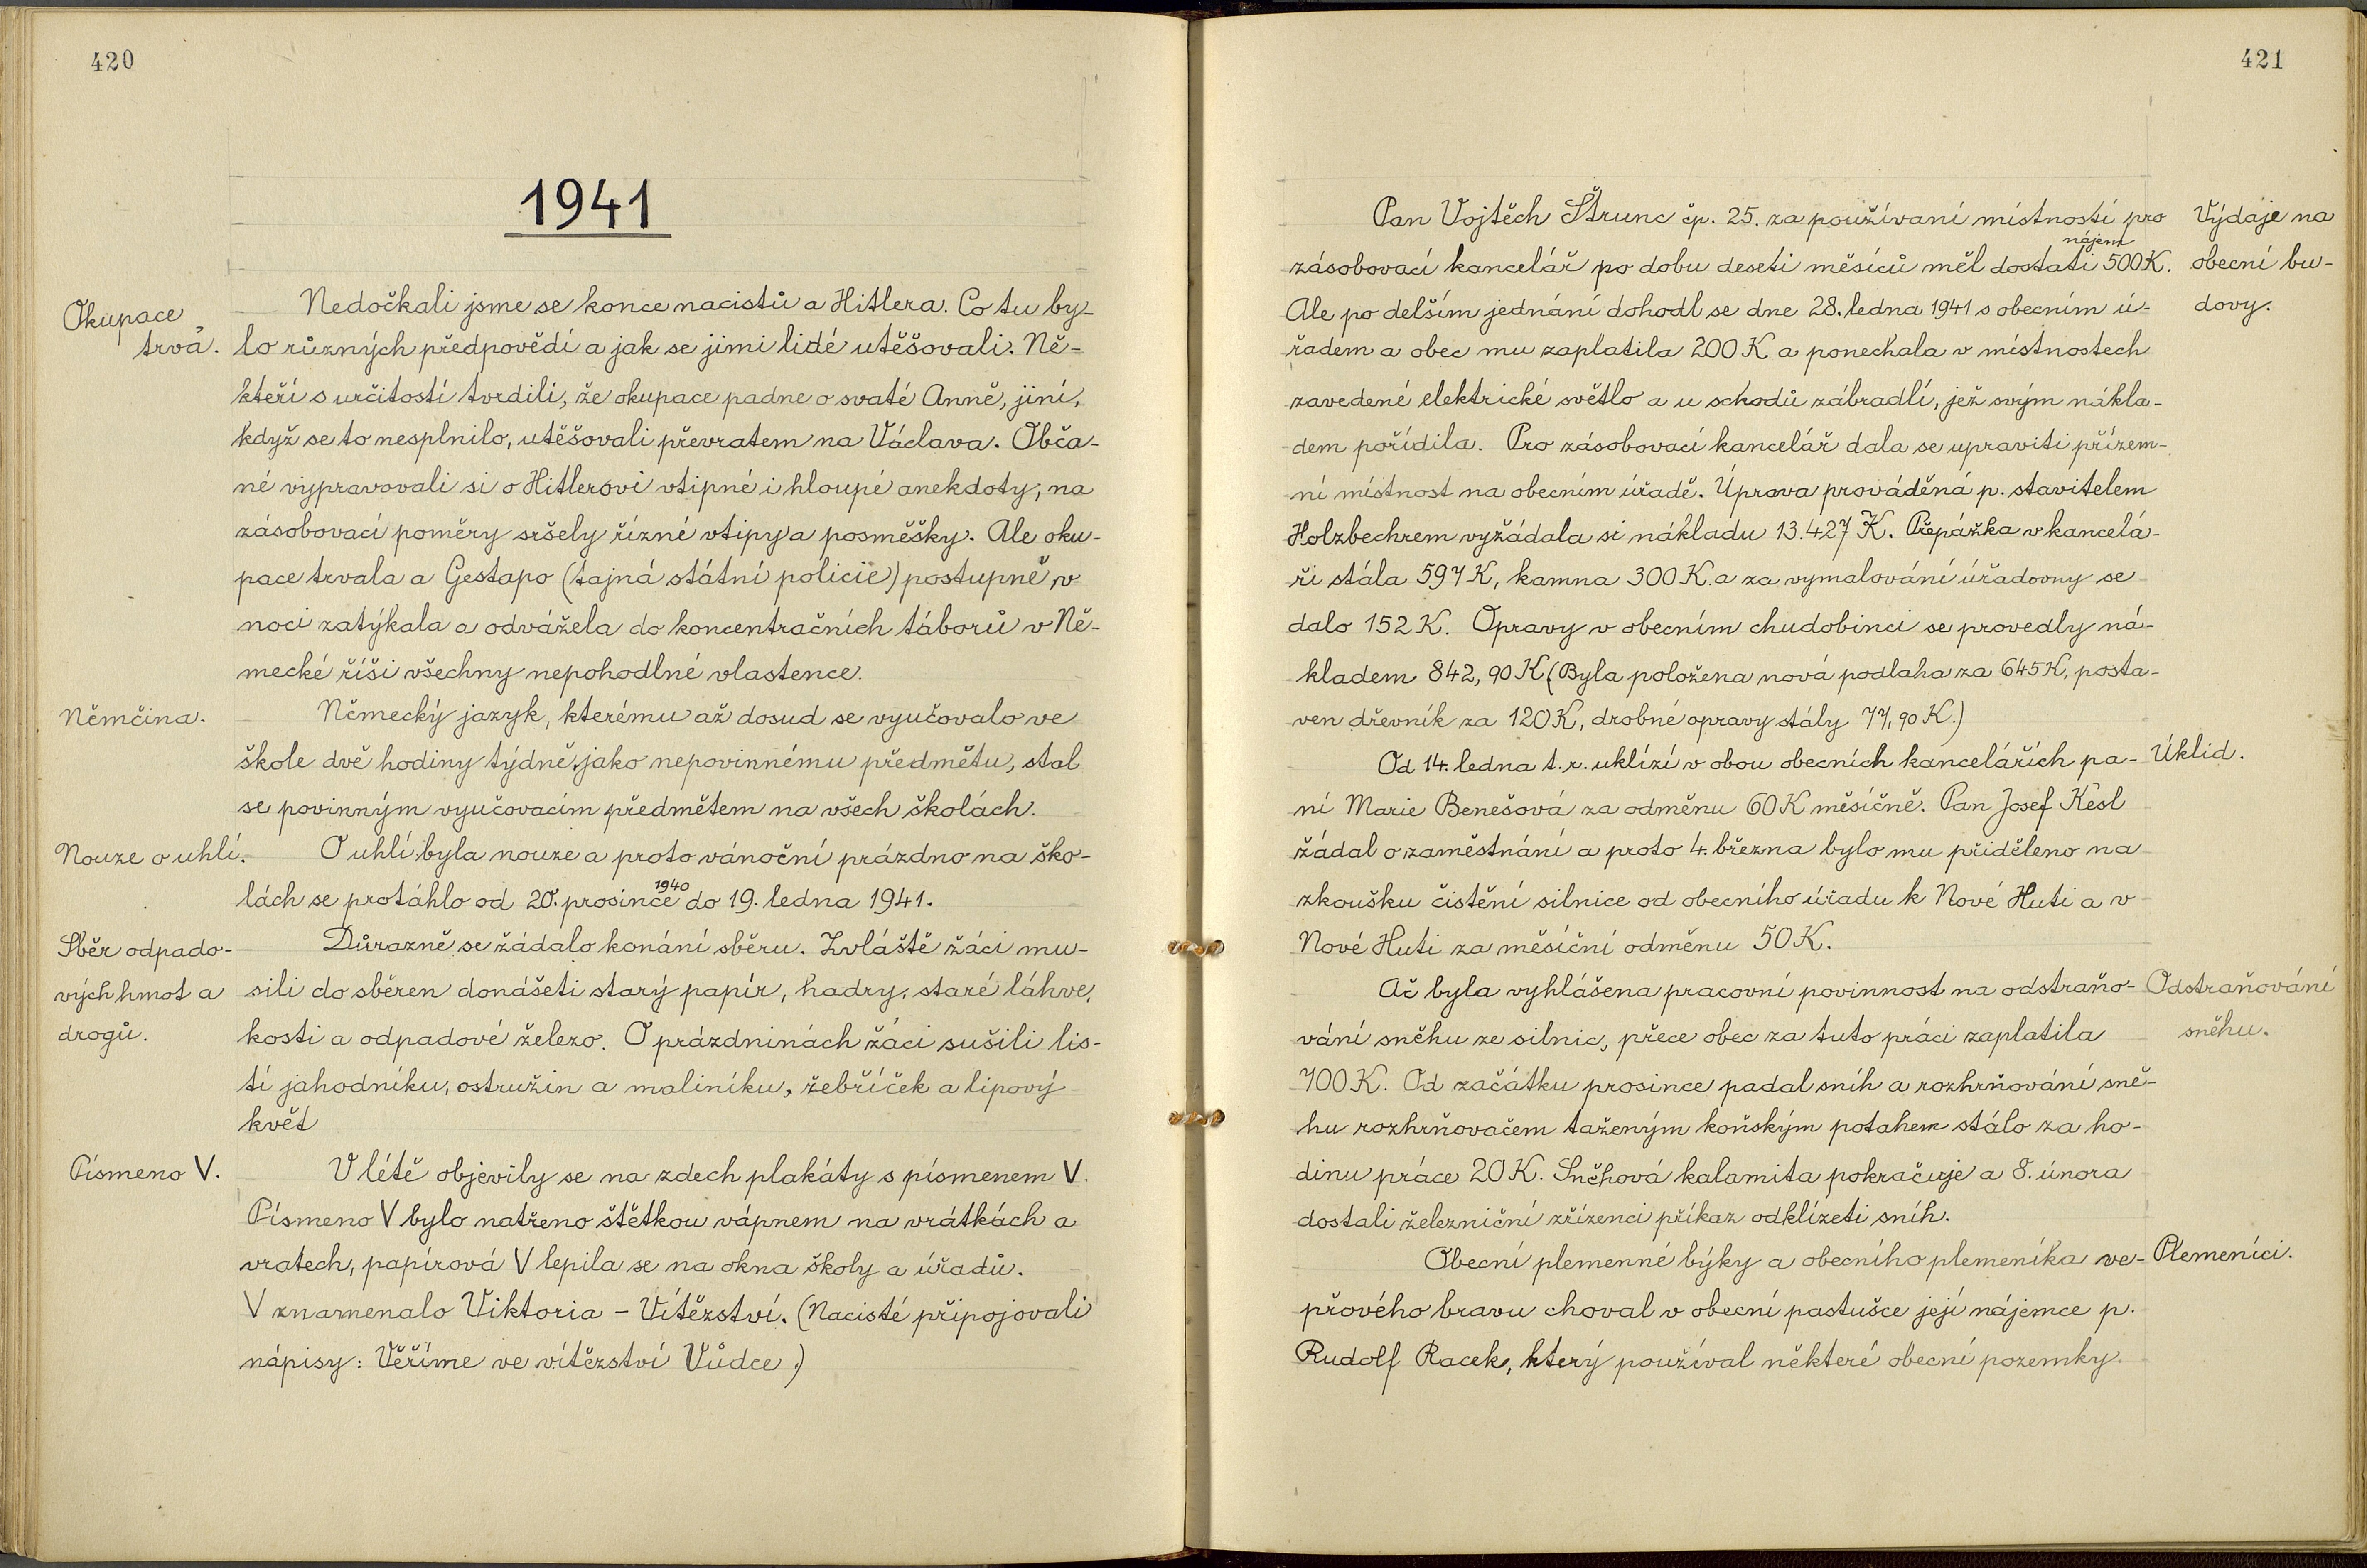 420
1941
Okupace
trvá.
Nedočkali jsme se konce nacistů a Hitlera. Co tu by-
lo různých předpovědí a jak se jimi lidé utěšovali. Ně-
kteří s určitostí tvrdili, že okupace padne o svaté Anně, jiní,
když se to nesplnilo, utěšovali převratem na Václava. Obča-
né vypravovali si o Hitlerovi vtipné i hloupé anekdoty, na
zásobovací poměry sršely řízné vtipy a posměšky. Ale oku-
pace trvala a Gestapo (tajná státní policie) postupně v
noci zatýkala a odvážela do koncentračních táborů v Ně-
mecké říši všechny nepohodlné vlastence.
Němčina.
Německý jazyk, kterému až dosud se vyučovalo ve
škole dvě hodiny týdně jako nepovinnému předmětu, stal
se povinným vyučovacím předmětem na všech školách.
Nouze o uhlí.
O uhlí byla nouze a proto vánoční prázdno na ško-
1940
lách se protáhlo od 20. prosince do 19. ledna 1941.
Sběr odpado-
vých hmot a
drogů.
Důrazně se žádalo konání sběru. Zvláště žáci mu-
sili do sběren donášeti starý papír, hadry, staré láhve,
kosti a odpadové železo. O prázdninách žáci sušili lis-
tí jahodníku, ostružin a maliníku, řebříček a lipový
květ
Písmeno V.
V létě objevily se na zdech plakáty s písmenem V.
Písmeno V bylo natřeno štětkou vápnem na vrátkách a
vratech, papírová V lepila se na okna školy a úřadů.
V znamenalo Viktoria - Vítězství. (Nacisté připojovali
nápisy: Věříme ve vítězství Vůdce.)
421
Pan Vojtěch Štrunc čp. 25. za používaní místností pro
nájem
zásobovací kancelář po dobu deseti měsíců měl dostati 500 K.
Ale po delším jednání dohodl se dne 28. ledna 1941 s obecním ú-
řadem a obec mu zaplatila 200 K a ponechala v místnostech
zavedené elektrické světlo a u schodů zábradlí, jež svým nákla-
dem pořídila. Pro zásobovací kancelář dala se upraviti přízem-
ní místnost na obecním úřadě. Úprava prováděná p. stavitelem
Holzbechrem vyžádala si nákladu 13.427 K. Přepážka v kancelá-
ři stála 597 K, kamna 300 K. a za vymalování úřadovny se
dalo 152 K. Opravy v obecním chudobinci se provedly ná-
kladem 842,90 K (Byla položena nová podlaha za 645 K, posta-
ven dřevník za 120 K, drobné opravy stály 77,90 K.)
Výdaje na
obecní bu-
dovy.
Od 14. ledna t.r. uklízí v obou obecních kancelářích pa-
ní Marie Benešová za odměnu 60 K měsíčně. Pan Josef Kesl
žádal o zaměstnání a proto 4. března bylo mu přiděleno na
zkoušku čistění silnice od obecního úřadu k Nové Huti a v
Nové Huti za měsíční odměnu 50 K.
Úklid.
Ač byla vyhlášena pracovní povinnost na odstraňo-
vání sněhu ze silnic, přece obec za tuto práci zaplatila
700 K. Od začátku prosince padal sníh a rozhrňování sně-
hu rozhrňovačem taženým koňským potahem stálo za ho-
dinu práce 20 K. Sněhová kalamita pokračuje a 8. února
dostali železniční zřízenci příkaz odklízeti sníh.
Odstraňování
sněhu.
Obecní plemenné býky a obecního plemeníka ve-
přového bravu choval v obecní pastušce její nájemce p.
Rudolf Racek, který používal některé obecní pozemky.
Plemeníci.